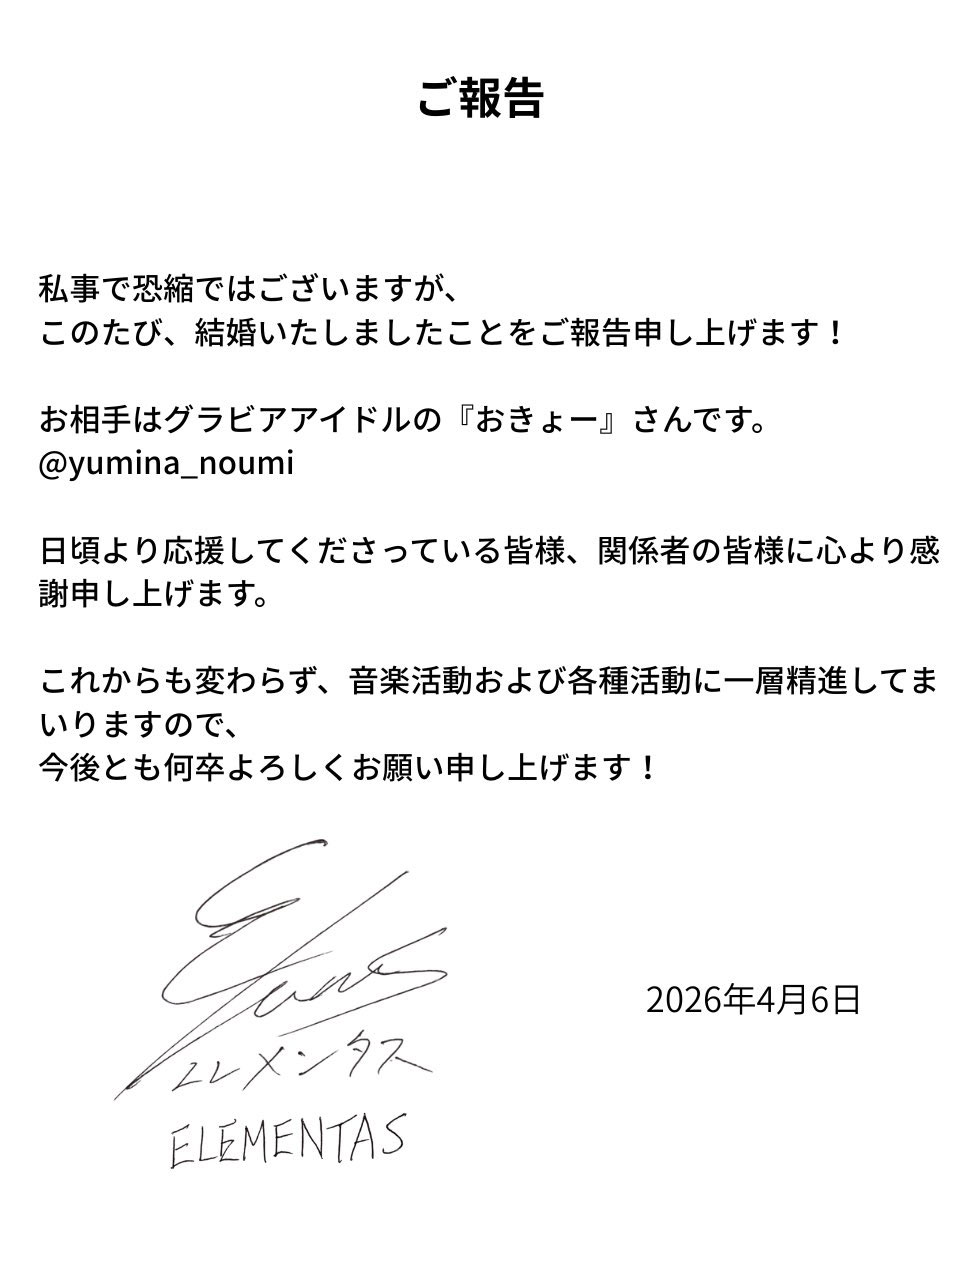 ご報告
私事で恐縮ではございますが、
このたび、結婚いたしましたことをご報告申し上げます！
お相手はグラビアアイドルの『おきょー』さんです。
@yumina_noumi
日頃より応援してくださっている皆様、関係者の皆様に心より感
謝申し上げます。
これからも変わらず、音楽活動および各種活動に一層精進してま
いりますので、
今後とも何卒よろしくお願い申し上げます！
エレメンタス
ELEMENTAS
2026年4月6日